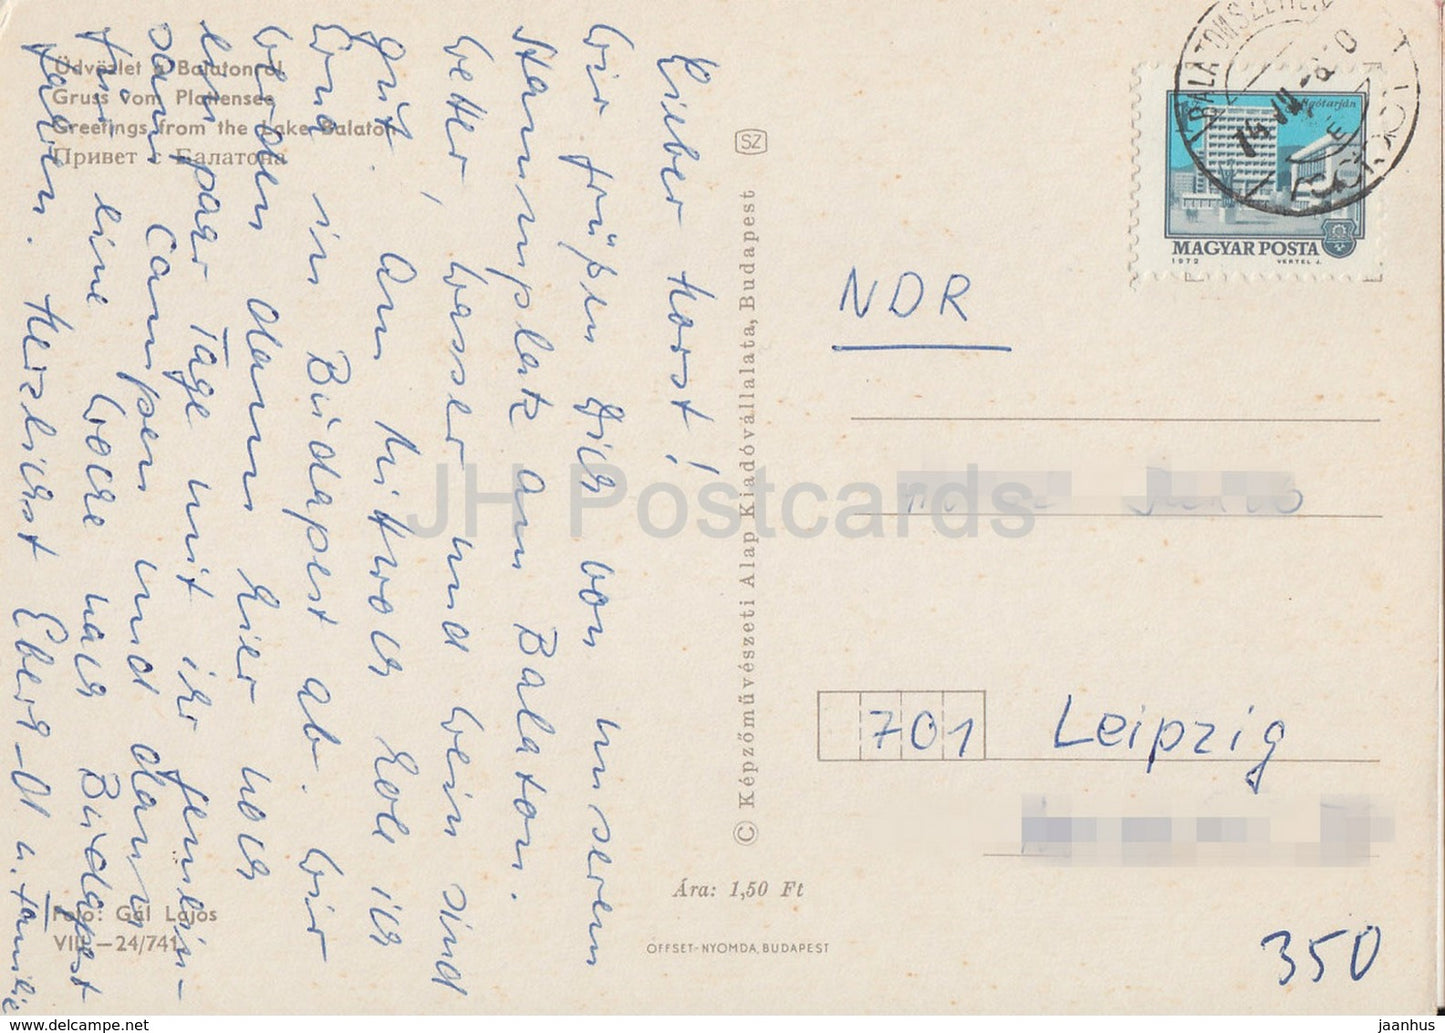 Üdvözlet a Balatonról
Gruss vom Plattensee
Greetings from the Lake Balaton
Привет с Балатона
Lieber Horst!
Wir grüßen Dich von unserem
Stammplatz am Balaton.
Wetter, Wasser und Wein sind
gut. Am Mittwoch hole ich
in Budapest ab. Wir
werden dann hier noch
ein paar Tage mit ihr gemein-
sam Campen und dann
für eine Woche nach Budapest
fahren. Herzlichst Eberh. u. Familie
Foto: Gál Lajos
VIII—24/741
SZ
© Képzőművészeti Alap Kiadóvállalata, Budapest
Ára: 1,50 Ft
OFFSET-NYOMDA, BUDAPEST
MAGYAR POSTA
1972 VERTEL J.
NDR
701 Leipzig
350
JH Postcards
jaanhus